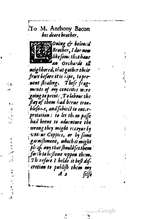 To M. Anthony Bacon
his deare brother.
Oving & belov'd
brother, I doe now
like some that haue
an Orcharde ill
neighbored, that gather their
fruit before it is ripe, to pre-
uent stealing. These frag-
ments of my conceites were
going to print: To labour the
stay of them had bin trou-
blesome, and subiect to
: to let them passe
had beene to aduenture the
wrong they might receyue by
Coppies, or by some
garnishment, which it might
please any that should set them
forth to bestow vpon them.
Therefore I helde it best
cretion to publish them my
selfe